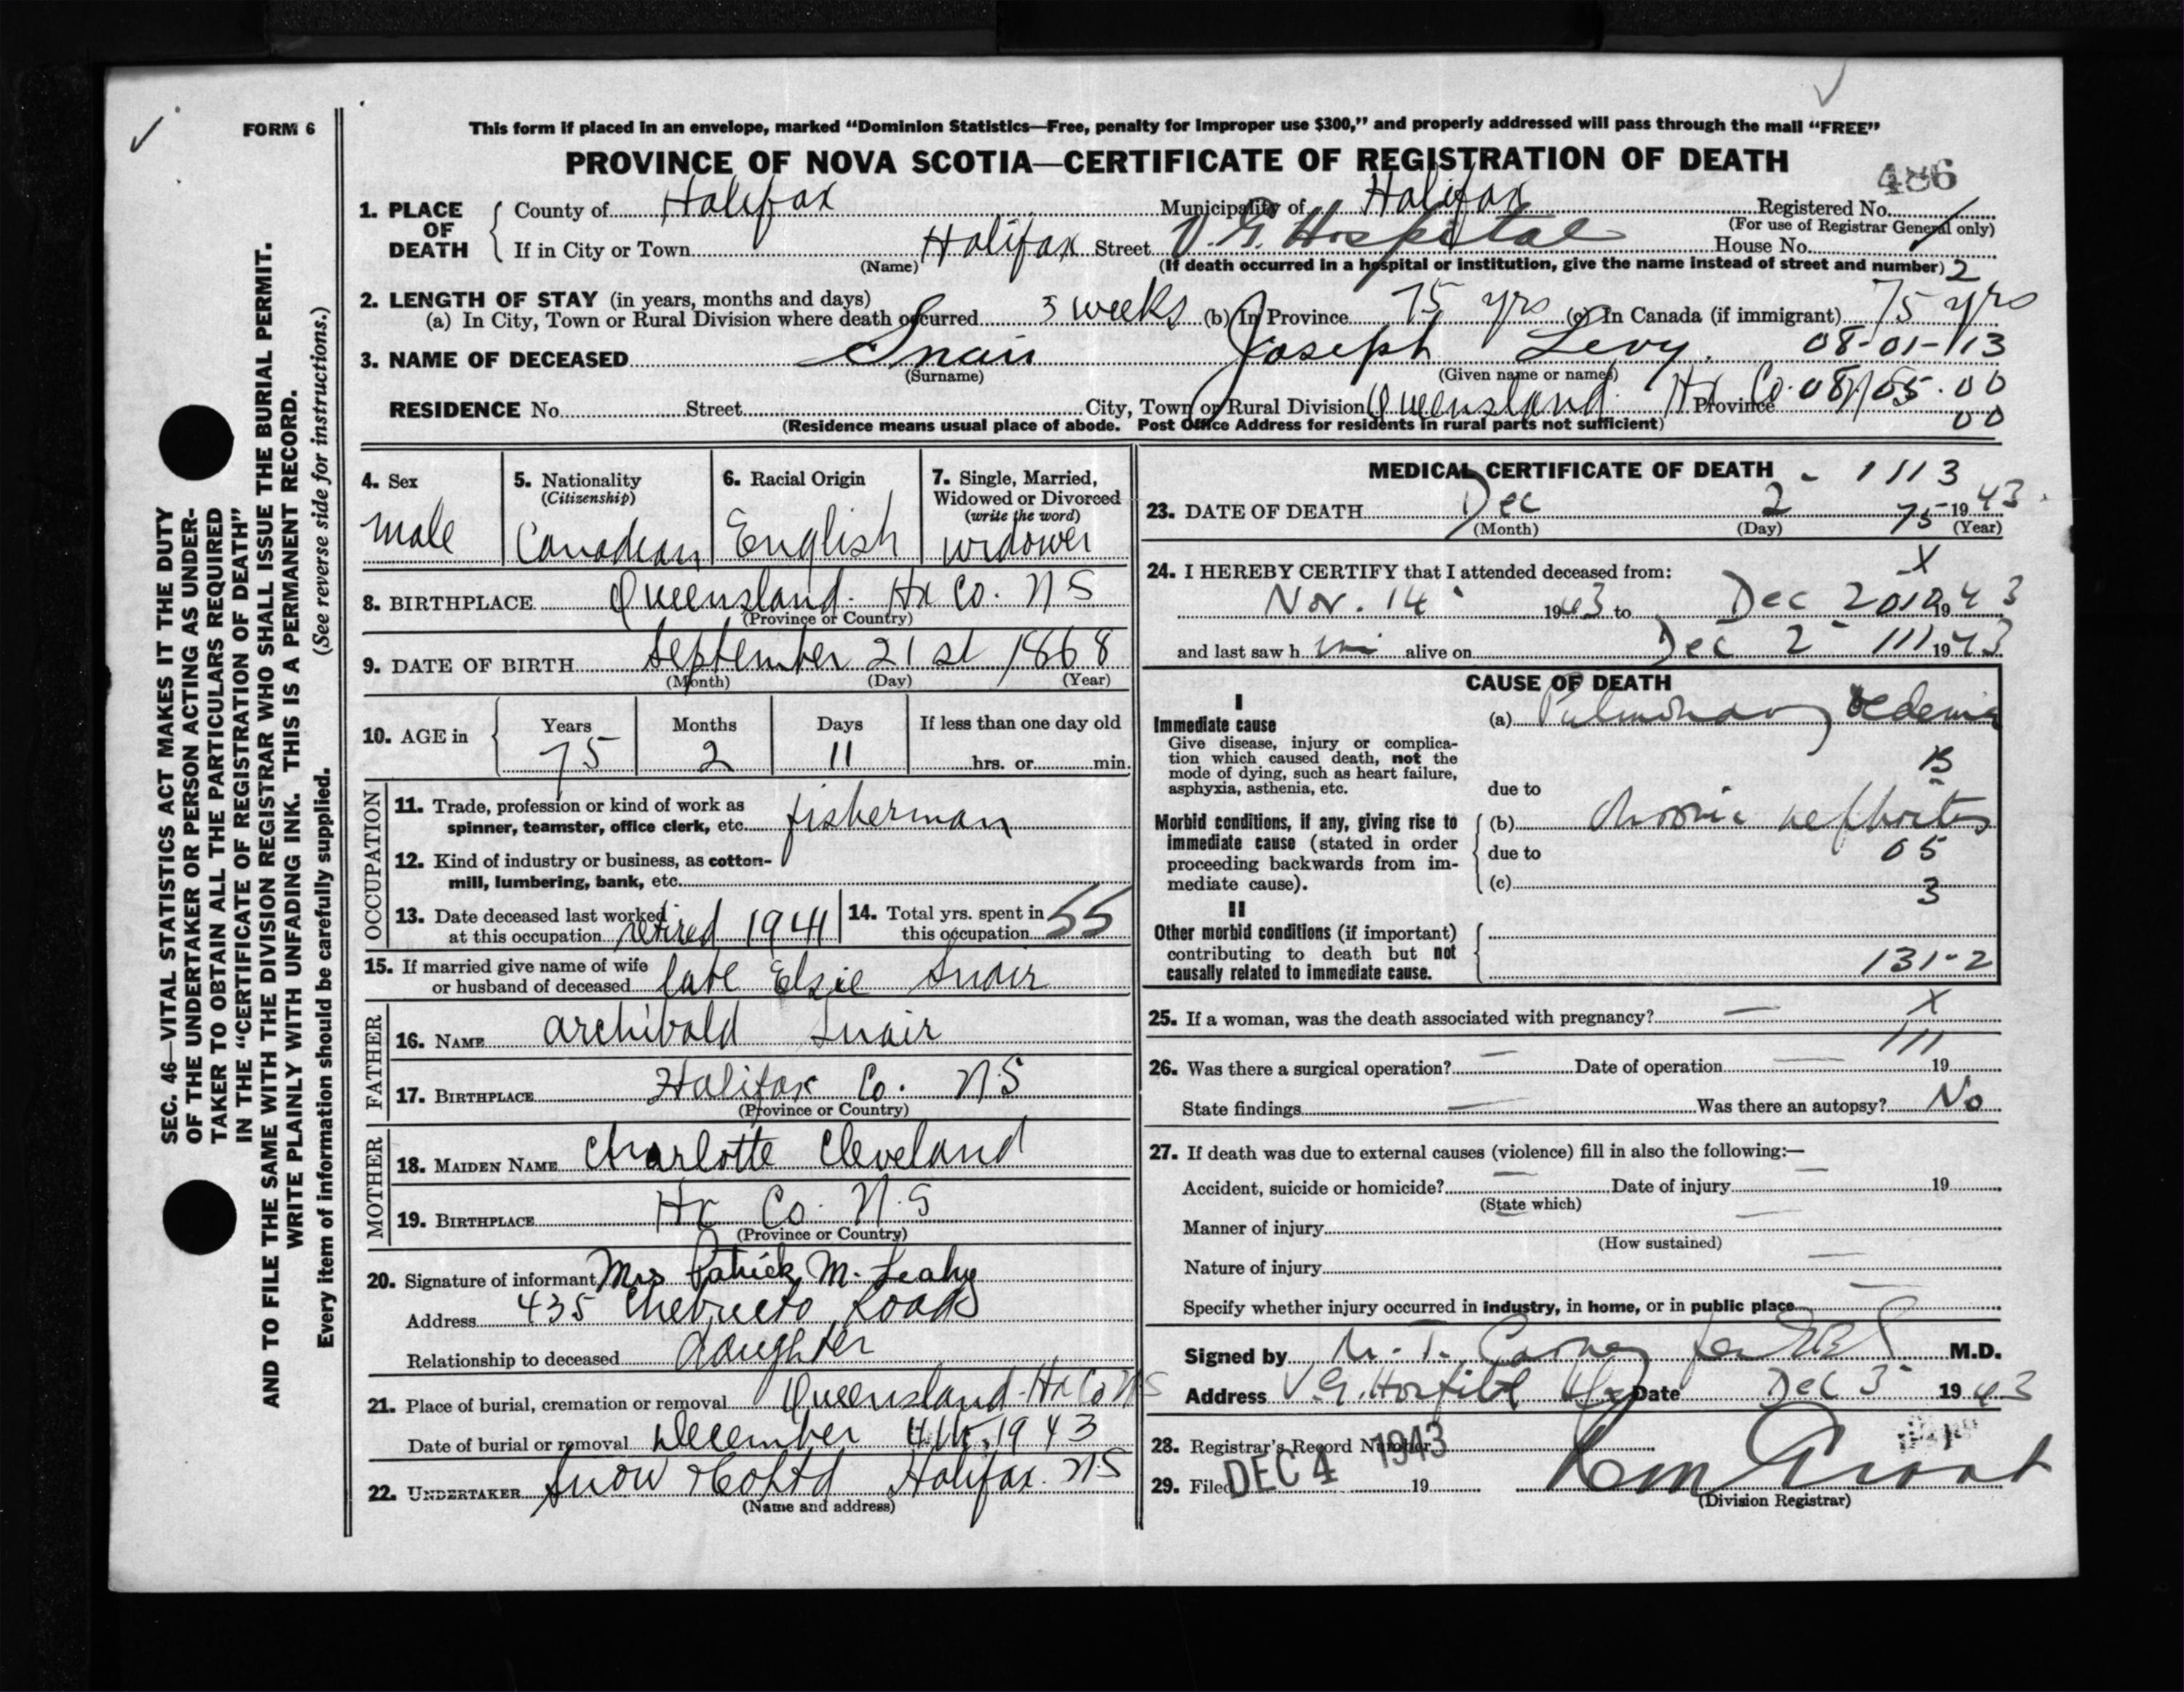 FORM 6
This form if placed in an envelope, marked “Dominion Statistics—Free, penalty for improper use $300,” and properly addressed will pass through the mail “FREE”
PROVINCE OF NOVA SCOTIA—CERTIFICATE OF REGISTRATION OF DEATH
486
1. PLACE OF DEATH
County of Halifax Municipality of Halifax Registered No.
(For use of Registrar General only)
If in City or Town Halifax Street V. G. Hospital House No.
(Name) (If death occurred in a hospital or institution, give the name instead of street and number) 2
2. LENGTH OF STAY (in years, months and days)
(a) In City, Town or Rural Division where death occurred 3 weeks (b) In Province 75 yrs (c) In Canada (if immigrant) 75 yrs
3. NAME OF DECEASED Snair Joseph Levy. 08-01-113
(Surname) (Given name or names)
RESIDENCE No. Street City, Town or Rural Division Queensland Hx Co. Province 08/105.00
(Residence means usual place of abode. Post Office Address for residents in rural parts not sufficient) 00
SEC. 46—VITAL STATISTICS ACT MAKES IT THE DUTY
OF THE UNDERTAKER OR PERSON ACTING AS UNDER-
TAKER TO OBTAIN ALL THE PARTICULARS REQUIRED
IN THE “CERTIFICATE OF REGISTRATION OF DEATH”
AND TO FILE THE SAME WITH THE DIVISION REGISTRAR WHO SHALL ISSUE THE BURIAL PERMIT.
WRITE PLAINLY WITH UNFADING INK. THIS IS A PERMANENT RECORD.
Every item of information should be carefully supplied. (See reverse side for instructions.)
4. Sex
male
5. Nationality
(Citizenship)
Canadian
6. Racial Origin
English
7. Single, Married,
Widowed or Divorced
(write the word)
widower
8. BIRTHPLACE Queensland. Hx Co. N S
(Province or Country)
9. DATE OF BIRTH September 21 st 1868
(Month) (Day) (Year)
10. AGE in
Years Months Days If less than one day old
75 2 11 hrs. or min.
OCCUPATION
11. Trade, profession or kind of work as
spinner, teamster, office clerk, etc. fisherman
12. Kind of industry or business, as cotton-
mill, lumbering, bank, etc.
13. Date deceased last worked
at this occupation retired 1941
14. Total yrs. spent in
this occupation 55
15. If married give name of wife
or husband of deceased late Elsie Snair
FATHER
16. NAME Archibald Snair
17. BIRTHPLACE Halifax Co. N.S
(Province or Country)
MOTHER
18. MAIDEN NAME Charlotte Cleveland
19. BIRTHPLACE Hx Co. N.S
(Province or Country)
20. Signature of informant Mrs Patrick M. Leahy
Address 435 Chebucto Road
Relationship to deceased daughter
21. Place of burial, cremation or removal Queensland Hx Co N S
Date of burial or removal December 4th, 1943
22. UNDERTAKER Snow & Co Ltd Halifax. N.S
(Name and address)
MEDICAL CERTIFICATE OF DEATH - 1113
23. DATE OF DEATH Dec 2 75 1943
(Month) (Day) (Year)
24. I HEREBY CERTIFY that I attended deceased from: X
Nov. 14 1943 to Dec 2 1943
and last saw h im alive on Dec 2 111 1943
CAUSE OF DEATH
I
Immediate cause
Give disease, injury or complica-
tion which caused death, not the
mode of dying, such as heart failure,
asphyxia, asthenia, etc.
(a) Pulmonary oedema
due to
Morbid conditions, if any, giving rise to
immediate cause (stated in order
proceeding backwards from im-
mediate cause).
(b) chronic nephritis
due to 05
(c) 3
II
Other morbid conditions (if important)
contributing to death but not
causally related to immediate cause. 131-2
25. If a woman, was the death associated with pregnancy? — X
111
26. Was there a surgical operation? — Date of operation — 19
State findings — Was there an autopsy? No
27. If death was due to external causes (violence) fill in also the following:—
Accident, suicide or homicide? — Date of injury — 19
(State which)
Manner of injury —
(How sustained)
Nature of injury —
Specify whether injury occurred in industry, in home, or in public place —
Signed by M.D.
Address V.G. Hospital Hfx Date Dec 3 1943
28. Registrar's Record Number
29. Filed DEC 4 1943 19
(Division Registrar)